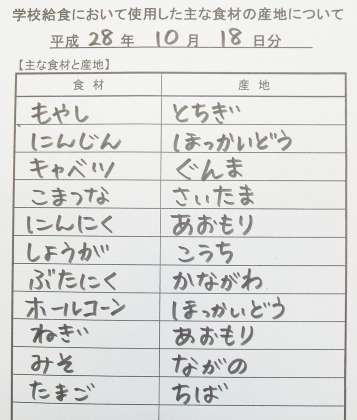 学校給食において使用した主な食材の産地について
平成 28 年 10 月 18 日分
【主な食材と産地】
食材 産地
もやし とちぎ
にんじん ほっかいどう
キャベツ ぐんま
こまつな さいたま
にんにく あおもり
しょうが こうち
ぶたにく かながわ
ホールコーン ほっかいどう
ねぎ あおもり
みそ ながの
たまご ちば